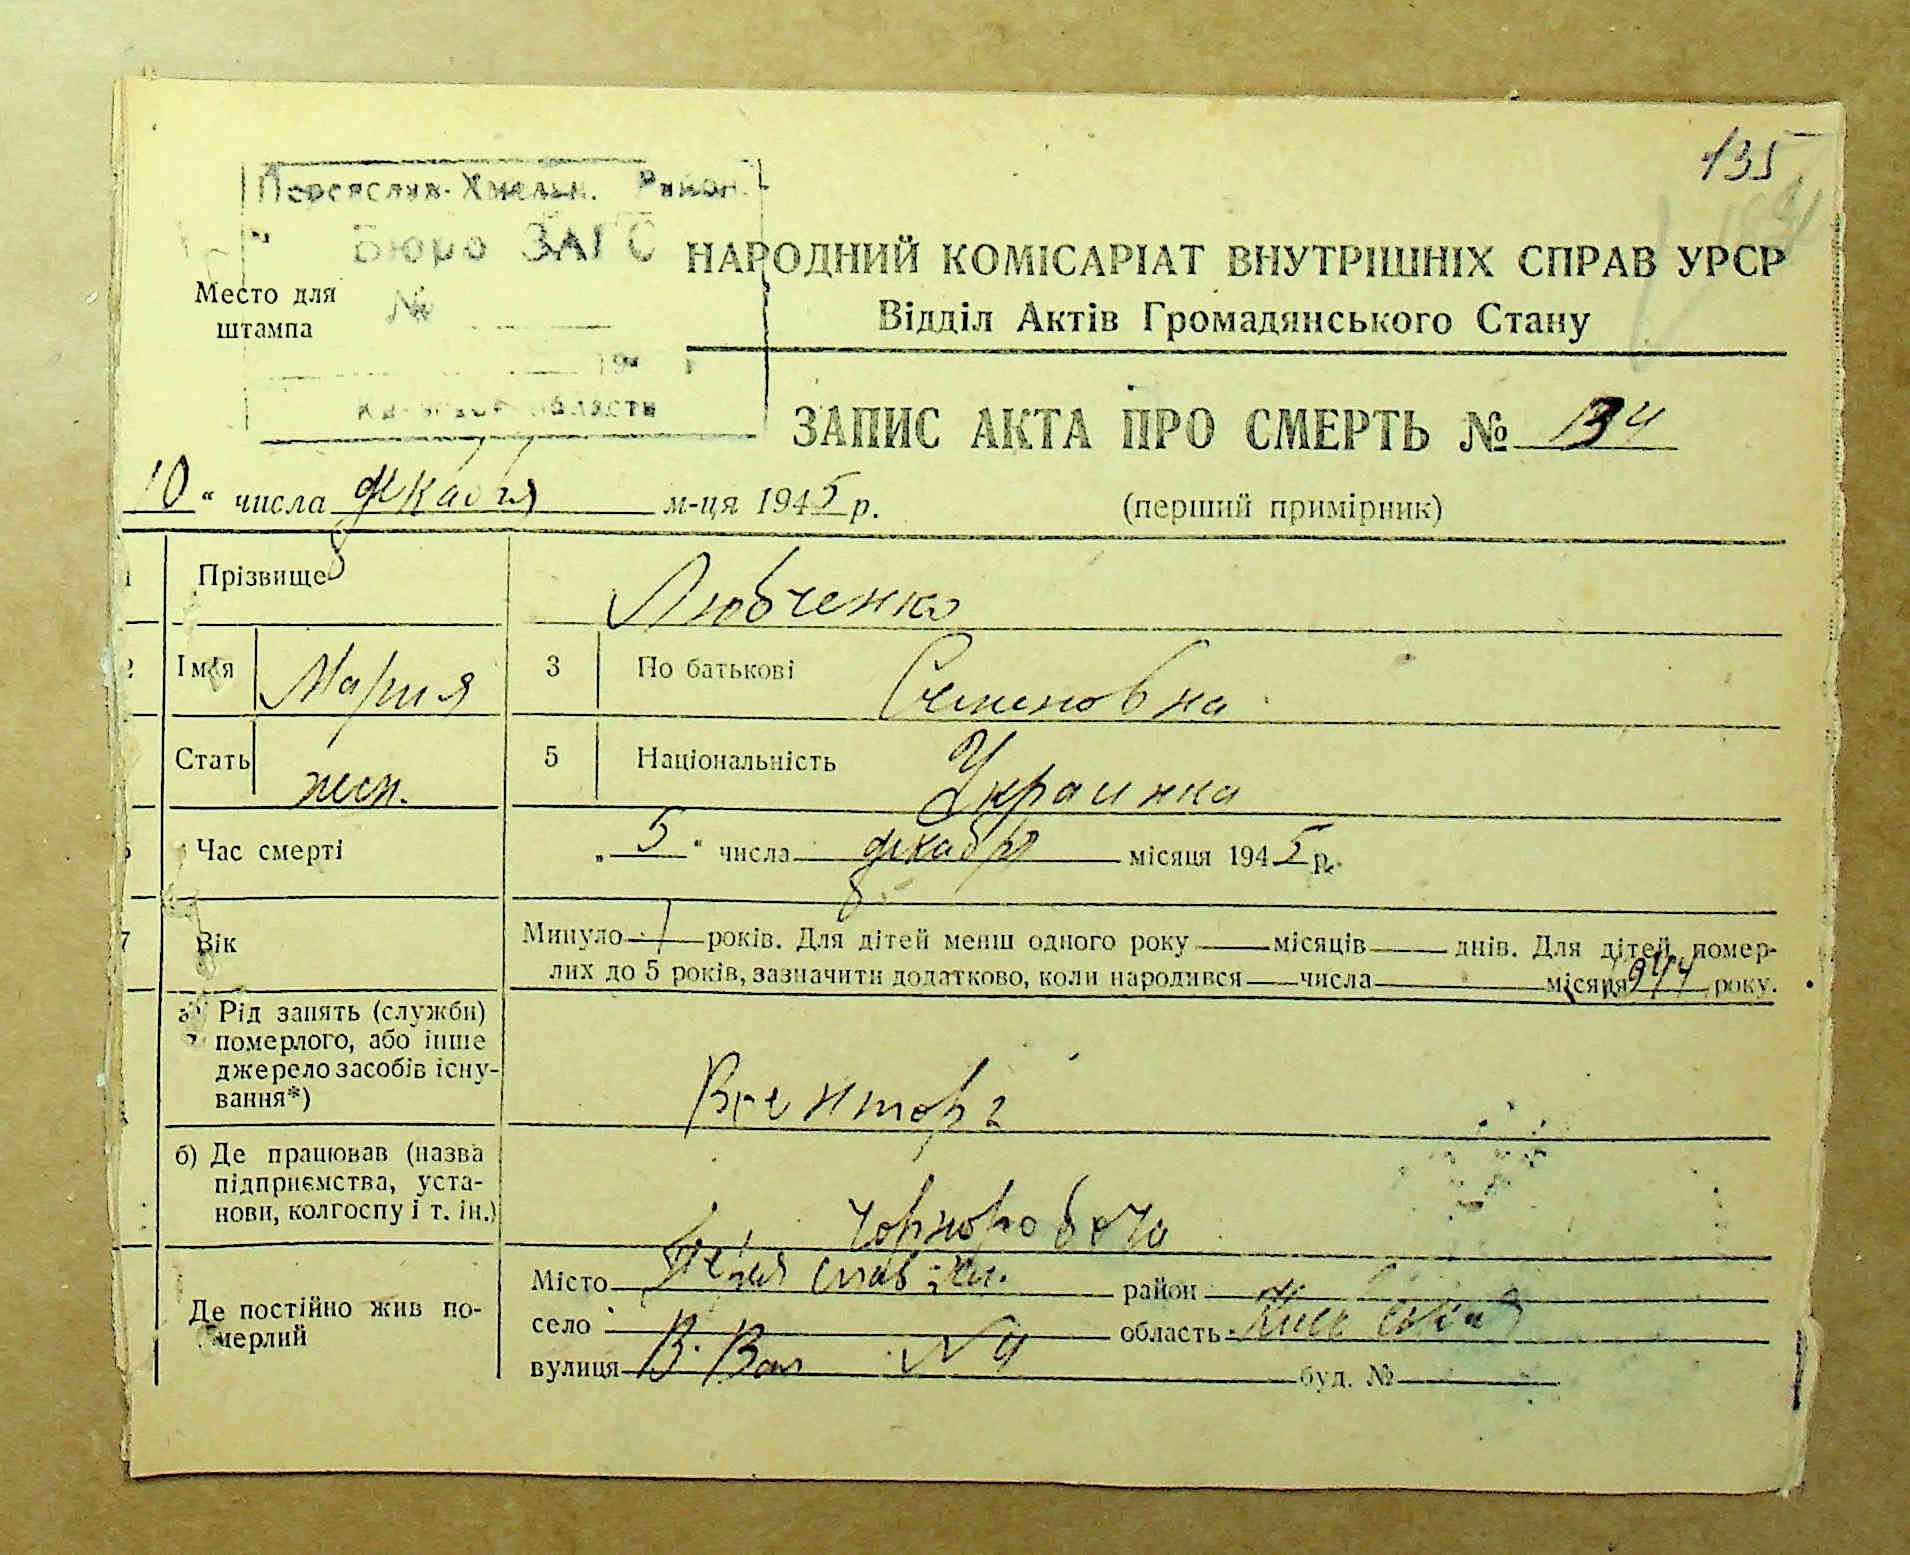 135
Переяслав-Хмельн. Район.
Бюро ЗАГС
№
Место для
штампа
НАРОДНИЙ КОМІСАРІАТ ВНУТРІШНІХ СПРАВ УРСР
Відділ Актів Громадянського Стану
ЗАПИС АКТА ПРО СМЕРТЬ № 134
10 “ числа декабря м-ця 1945 р. (перший примірник)
Прізвище Любченко
Імʼя Мария 3 По батькові Семеновна
Стать жен. 5 Національність Украинка
Час смерті „ 5 “ числа декабря місяця 1945 р.
7 Вік Минуло 1 років. Для дітей менш одного року місяців днів. Для дітей помер-
лих до 5 років, зазначити додатково, коли народився числа місяця 1944 року.
Рід занять (служби)
померлого, або інше
джерело засобів існу-
вання*)
б) Де працював (назва
підприємства, уста-
нови, колгоспу і т. ін.)
Де постійно жив по-
мерлий
Місто район
село область Киевская
вулиця В. Вал № 9 буд. №